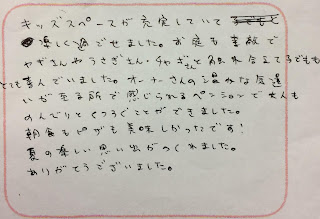 キッズスペースが充実していて
楽しく過ごせました。お庭も素敵で
やぎさんやうさぎさん・うなぎさんと触れ合えて子どもも
とても喜んでいました。オーナーさんの温かな気遣
いが至る所で感じられるペンションで大人も
のんびりとくつろぐことができました。
朝食もピザも美味しかったです!
夏の楽しい思い出がつくれました。
ありがとうございました。